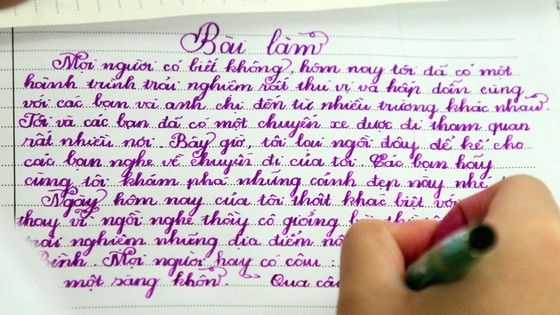 Bài làm
Mọi người có biết không, hôm nay tôi đã có một
hành trình trải nghiệm rất thú vị và hấp dẫn cùng
với các bạn và anh chị đến từ nhiều trường khác nhau.
Tôi và các bạn đã có một chuyến xe được đi tham quan
rất nhiều nơi. Bây giờ, tôi lại ngồi đây để kể cho
các bạn nghe về chuyến đi của tôi. Các bạn hãy
cùng tôi khám phá những cảnh đẹp này
Ngày hôm nay của tôi thật khác biệt với
thay vì ngồi nghe thầy cô giảng bài
trải nghiệm những địa điểm
Bình. Mọi người hay có câu :
một sàng khôn. Qua câu